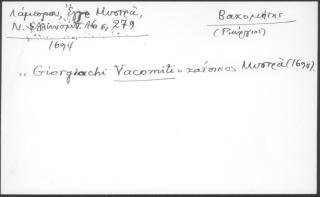 Λάμπρου, Μυστρᾶ,
Ν. Ἑλληνομν. 16, 279
1694
Βακομήτης
(Γεώργιος)
„ Giorgachi Vacomiti „ κάτοικος Μυστρᾶ (1694).